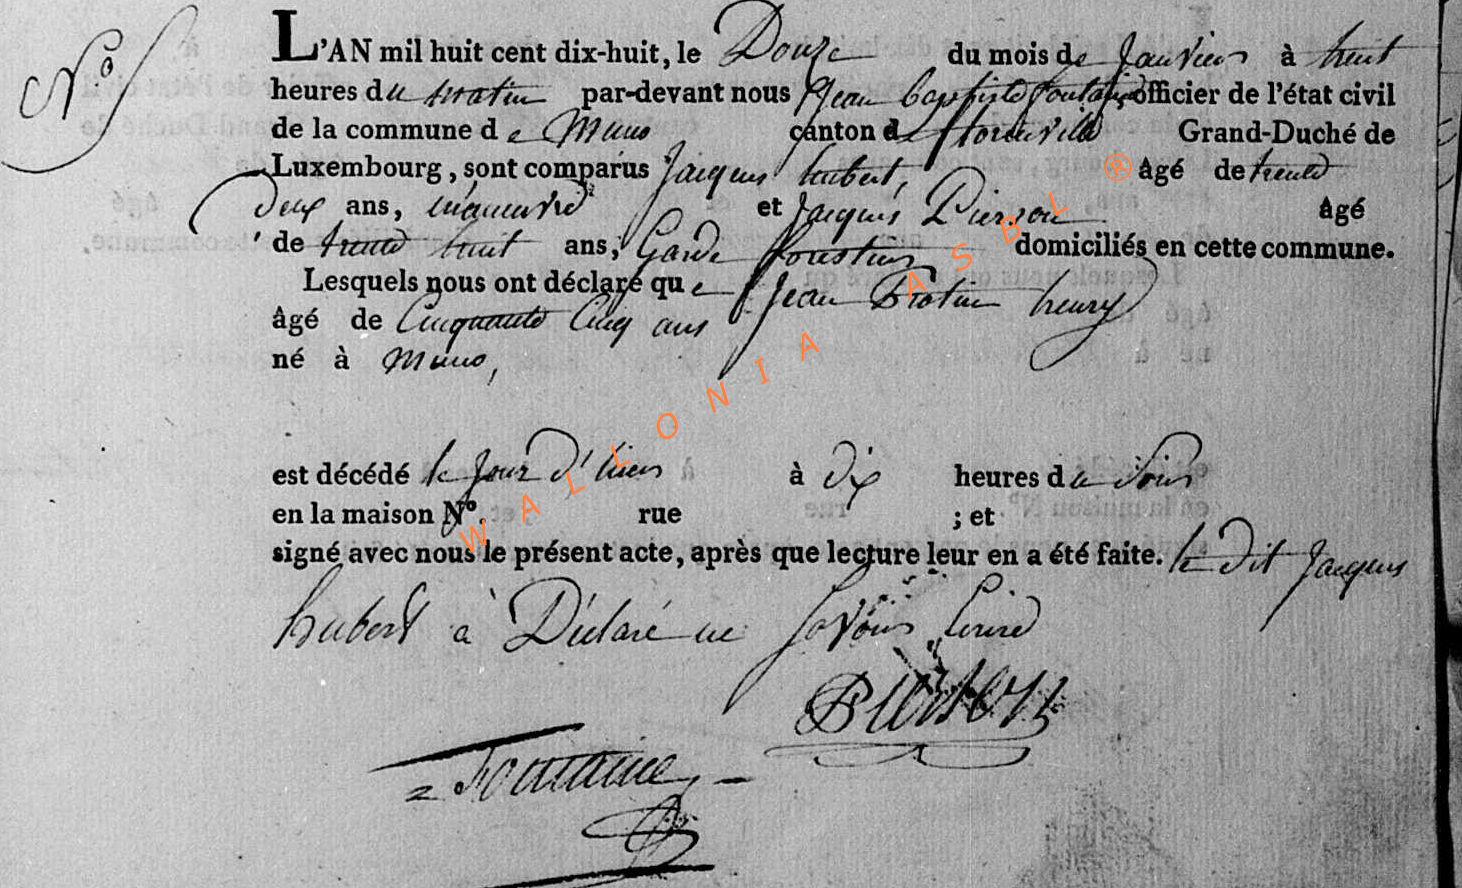 N°
L'AN mil huit cent dix-huit, le Douze du mois de Janvier à huit
heures du matin par-devant nous Jean baptiste fontaine officier de l'état civil
de la commune de Muno canton de florenville Grand-Duché de
Luxembourg, sont comparus Jacques hubert, âgé de trente
deux ans, manuvre et Jacques Pierson âgé
de trente huit ans, Garde forestier domiciliés en cette commune.
Lesquels nous ont déclaré que Jean henry
âgé de Cinquante Cinq ans
né à Muno,
est décédé le jour d'hier à dix heures du soir
en la maison N°. rue ; et
signé avec nous le présent acte, après que lecture leur en a été faite. le dit Jacques
hubert à Déclaré ne savoir Ecrire
Pierson
Fontaine
WALLONIA ASBL ®